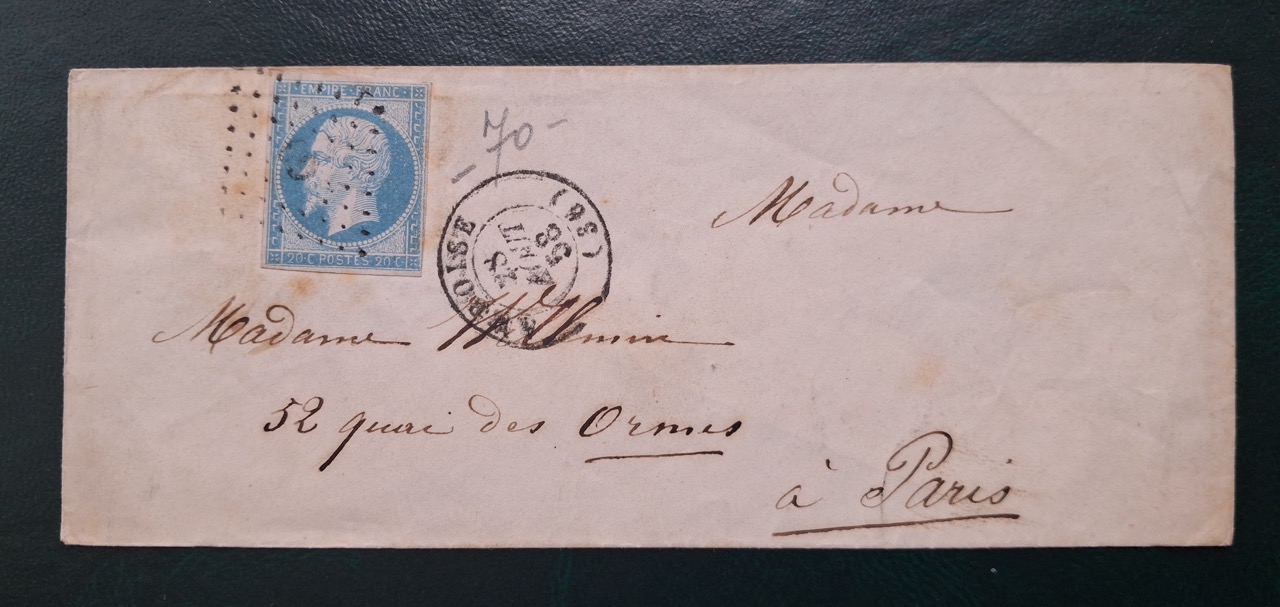 EMPIRE · FRANC ·
20·C POSTES 20·C
70
AMBOISE (36)
58
Madame
Madame
52 quai des Ormes
à Paris